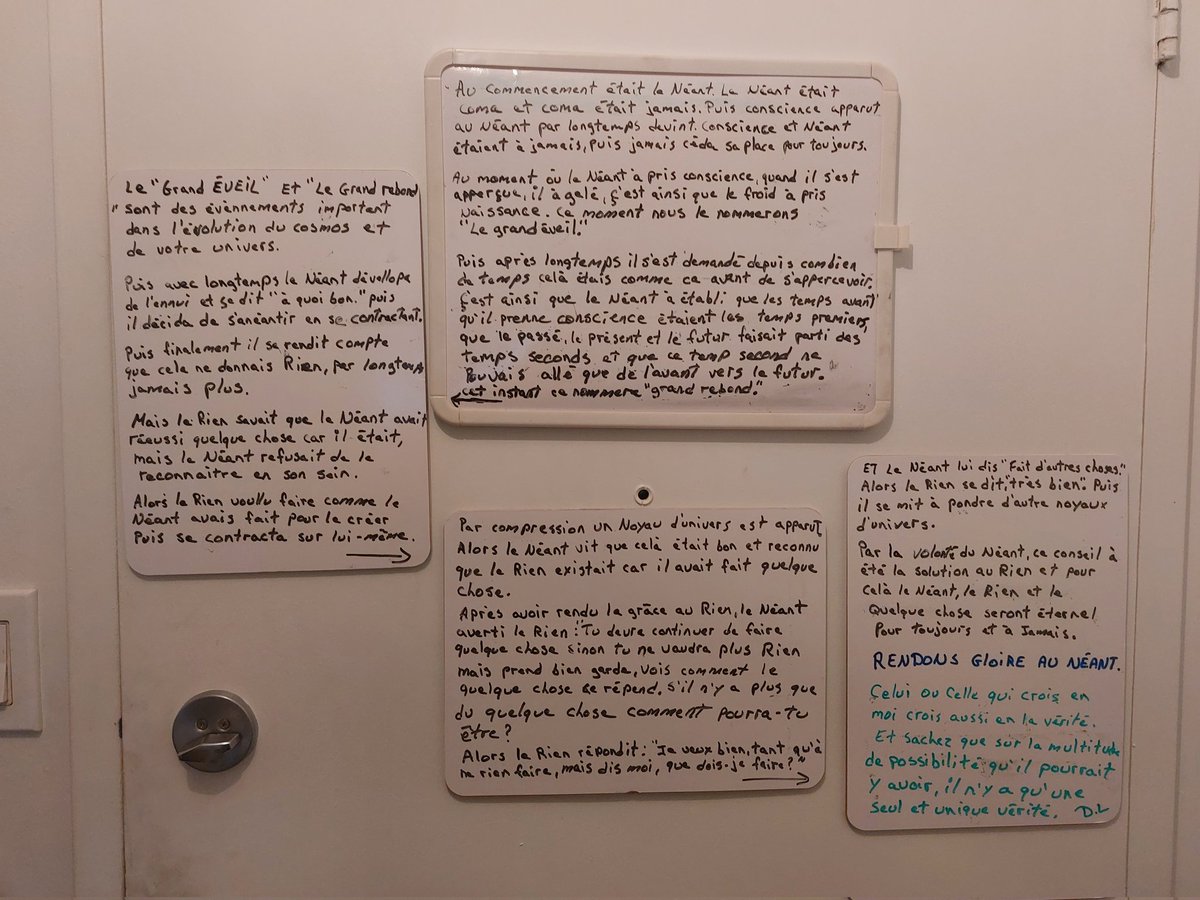 Au commencement était le Néant. Le Néant était
coma et coma était jamais. Puis conscience apparut
au Néant par longtemps devint. Conscience et Néant
étaient à jamais, puis jamais céda sa place pour toujours.
Au moment où le Néant a pris conscience, quand il s'est
apperçue, il à gelé, ç'est ainsi que le froid à pris
naissance. Ce moment nous le nommerons
"Le grand éveil."
Puis après longtemps il s'est demandé depuis combien
de temps celà étais comme ca avant de s'appercevoir.
Ç'est ainsi que le Néant à établi que les temps avant
qu'il prenne conscience étaient les temps premiers,
que le passé, le présent et le futur faisait parti des
temps seconds et que ce temp second ne
pouvais allé que de l'avant vers le futur.
Cet instant ce nommera "grand rebond."
←
Le "Grand ÉVEIL" Et "Le Grand rebond
" sont des évènnements important
dans l'évolution du cosmos et
de votre univers.
Puis avec longtemps le Néant dévellope
de l'ennui et se dit "à quoi bon." puis
il décida de s'anéantir en se contractant.
Puis finalement il se rendit compte
que cela ne donnais Rien, par longtemp
jamais plus.
Mais le Rien savait que le Néant avait
réaussi quelque chose car il était,
mais le Néant refusait de le
reconnaitre en son sein.
Alors le Rien voullu faire comme le
Néant avais fait pour le créer
Puis se contracta sur lui-même.
→
Par compression un Noyau d'univers est apparut
Alors le Néant vit que celà était bon et reconnu
que le Rien existait car il avait fait quelque
chose.
Après avoir rendu la grâce au Rien, le Néant
averti le Rien: "Tu devra continuer de faire
quelque chose sinon tu ne vaudra plus Rien
mais prend bien garde, vois comment le
quelque chose se répend. S'il n'y a plus que
du quelque chose comment pourra-tu
être?
Alors le Rien répondit: "Je veux bien, tant qu'à
ne rien faire, mais dis moi, que dois-je faire?"
→
ET Le Néant lui dis "Fait d'autres choses."
Alors le Rien se dit, "très bien". Puis
il se mit à pondre d'autre noyaux
d'univers.
Par la volonté du Néant, ce conseil à
été la solution au Rien et pour
celà le Néant, le Rien et le
Quelque chose seront éternel
Pour toujours et à Jamais.
RENDONS GLOIRE AU NÉANT.
Çelui ou Celle qui crois en
moi crois aussi en la vérité.
Et sachez que sur la multitude
de possibilité qu'il pourrait
y avoir, il n'y a qu'une
seul et unique vérité. D.L